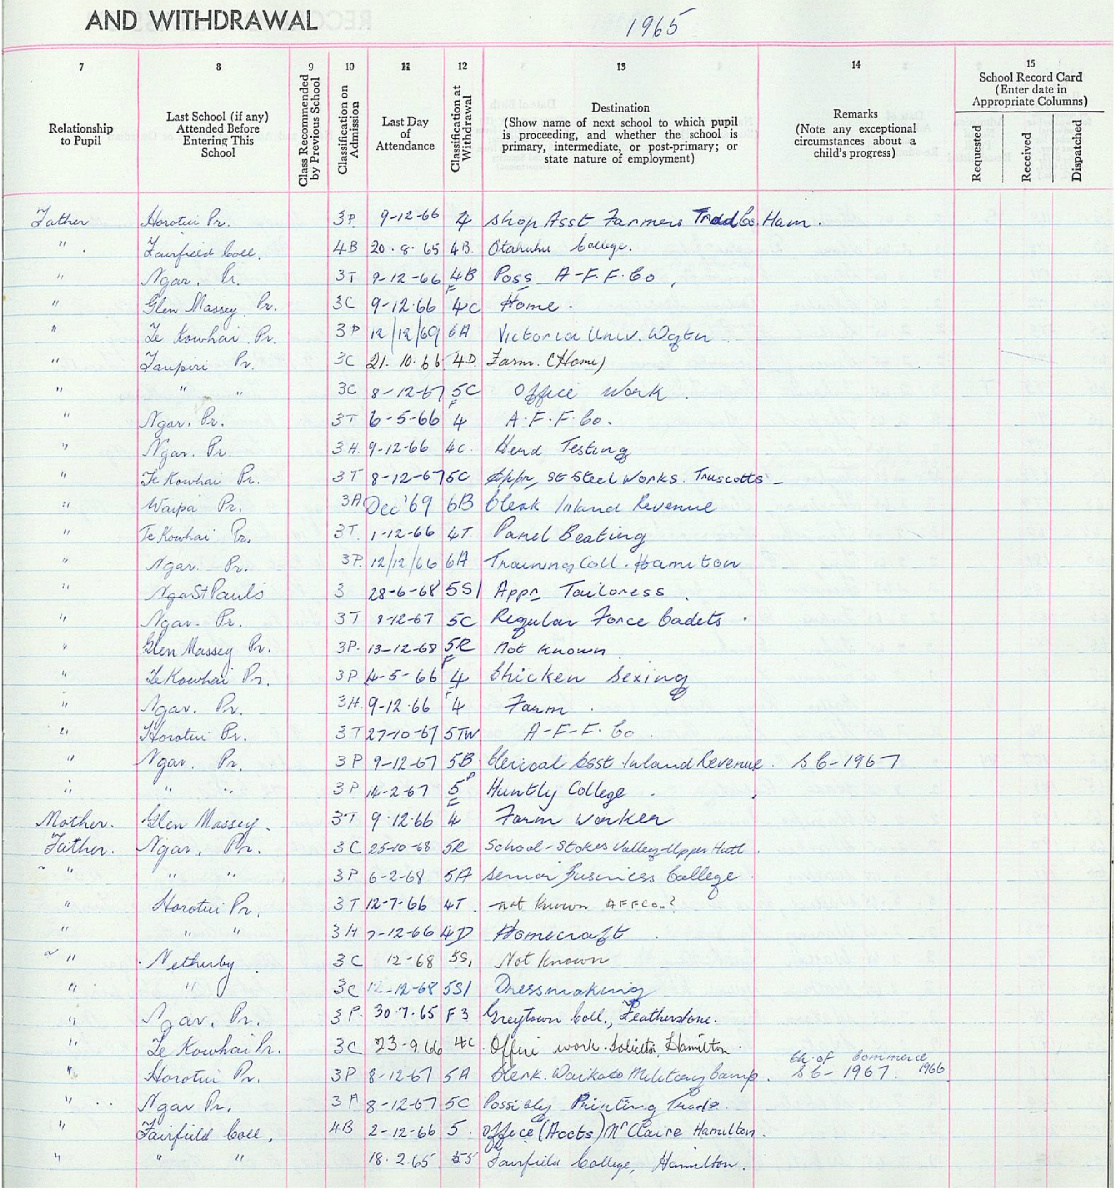 AND WITHDRAWAL 1965
7 8 9 10 11 12 13 14 15
Relationship to Pupil
Last School (if any) Attended Before Entering This School
Class Recommended by Previous School
Classification on Admission
Last Day of Attendance
Classification at Withdrawal
Destination (Show name of next school to which pupil is proceeding, and whether the school is primary, intermediate, or post-primary; or state nature of employment)
Remarks (Note any exceptional circumstances about a child's progress)
School Record Card (Enter date in Appropriate Columns)
Requested Received Dispatched
Father Horotiu Pr. 3P 9-12-66 4 Shop Asst Farmers Tradg Co. Ham.
" Fairfield Coll. 4B 20-8-65 4B. Otahuhu College.
" Ngar. Pr. 3T 9-12-66 4B Poss A-F.F.Co.
" Glen Massey Pr. 3C 9-12-66 4C Home.
" Te Kowhai Pr. 3P 12/12/69 6A Victoria Univ. Wgtn
" Taupiri Pr. 3C 21.10.66 4D Farm. (Home)
" " " 3C 8-12-67 5C Office Work.
" Ngar. Pr. 3T 6-5-66 4 A.F.F.Co.
" Ngar. Pr. 3H 9-12-66 4C. Herd Testing
" Te Kowhai Pr. 3T 8-12-67 5C Appr. St Steel Works. Truscotts
" Waipa Pr. 3A Dec '69 6B Clerk Inland Revenue
" Te Kowhai Pr. 3T. 1-12-66 4T Panel Beating
" Ngar. Pr. 3P. 12/12/66 6A Training Coll. Hamilton
" Ngar St Pauls 3 28-6-68 5S1 Appr Tailoress.
" Ngar. Pr. 3T 8-12-67 5C Regular Force Cadets.
" Glen Massey Pr. 3P. 13-12-68 5R Not Known
" Te Kowhai Pr. 3P 4-5-66 4 Chicken Sexing
" Ngar. Pr. 3H. 9-12-66 4 Farm.
" Horotiu Pr. 3T 27-10-67 5TW A-F-F.Co.
" Ngar. Pr. 3P 9-12-67 5B Clerical Asst Inland Revenue. S6-1967
" " " 3P 14-2-67 5P Huntly College.
Mother. Glen Massey. 3T 9.12.66 4 Farm Worker
Father. Ngar. Pr. 3C 25-10-68 5R School - Stokes Valley - Upper Hutt.
" " " 3P 6-2-68 5A Senior Business College
" Horotiu Pr. 3T 12-7-66 4T. not known AFFCo.?
" " " 3H 7-12-66 4D Homecraft.
" Netherby. 3C 12-68 5S, Not Known
" " 3C 12-12-68 5S1 Dressmaking
" Ngar. Pr. 3P. 30.7.65 F3 Greytown Coll., Featherstone.
" Te Kowhai Pr. 3C 23-9-66 4C Office work. Solicitor Hamilton.
" Horotiu Pr. 3P 8-12-67 5A Clerk. Waikato Military Camp. Ch. of Commerce 1966 S6-1967.
" Ngar Pr. 3A 8-12-67 5C Possibly Printing Trade.
" Fairfield Coll. 4B 2-12-66 5. Office (Accts) McClaire Hamilton.
" " " 18.2.65 5S Fairfield College, Hamilton.